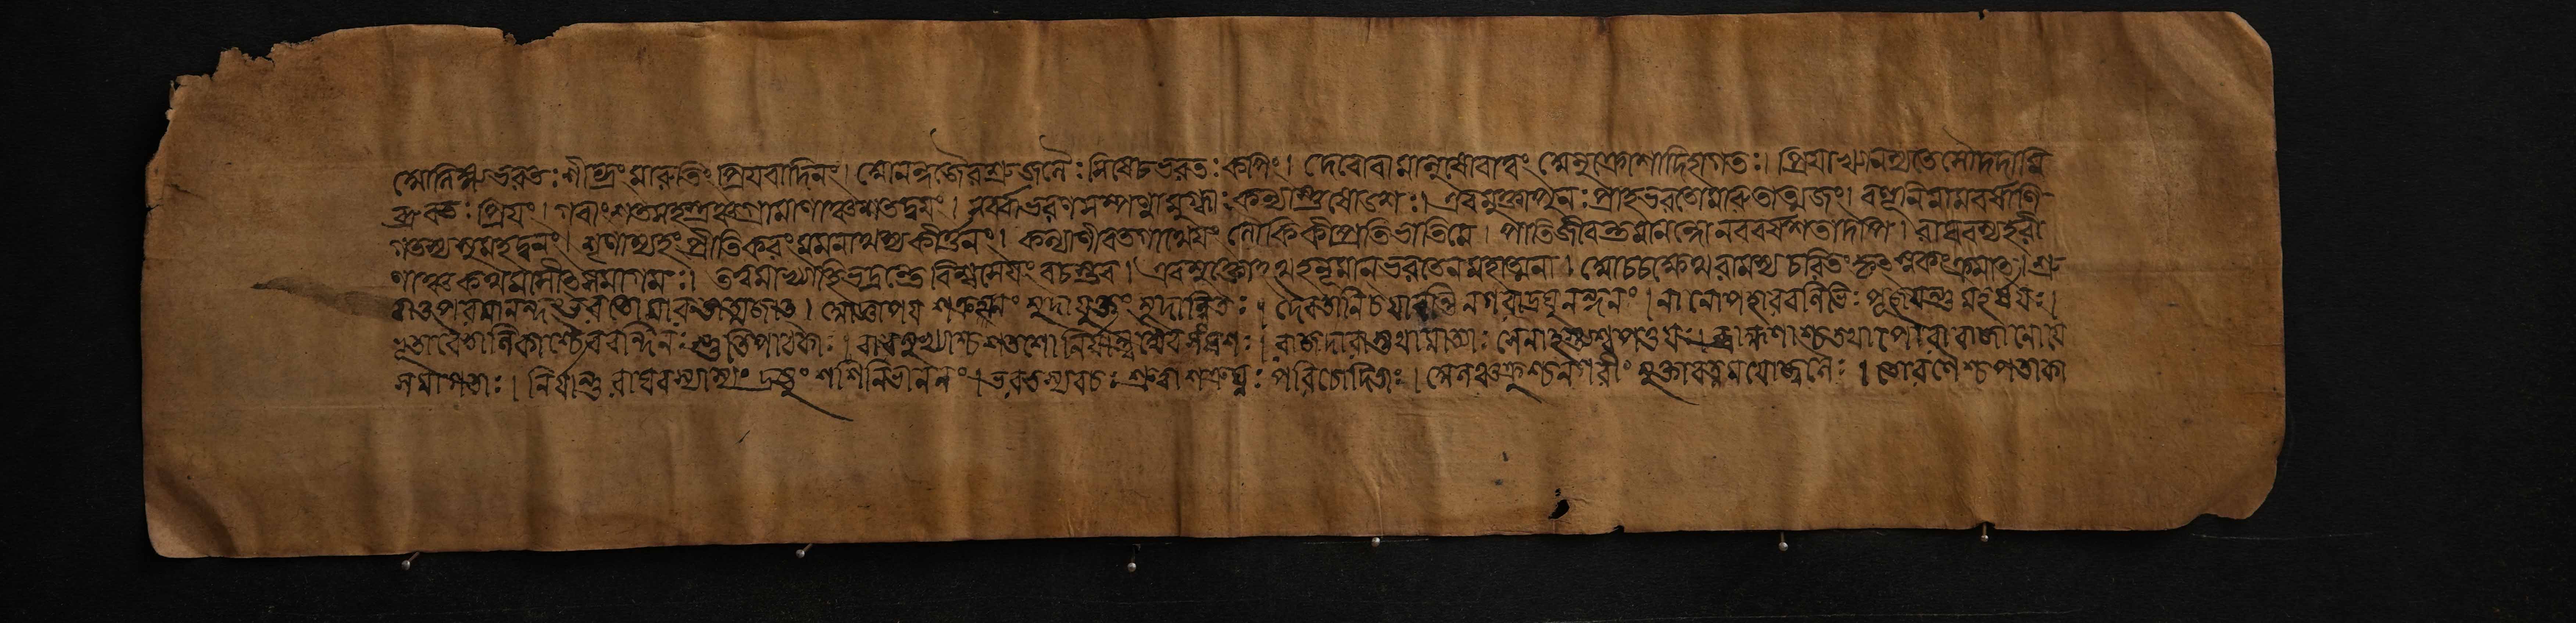 সোলিঙ্গ্যভরতঃ শীঘ্রং মারুতিং প্রিয়বাদিনং। সোনন্দজৈরশ্রুজলৈঃ সিষেচভরতঃ কপিং। দেবোবামানুষোবাত্বং সেনুক্রোশাদিহাগতঃ। প্রিয়াখ্যানস্যতেসৌম্যদদামি
ব্রুবতঃ প্রিয়ং। গবাংশতসহস্রঞ্চগ্রামাণাঞ্চশতদ্বয়ং। সর্ব্বাভরণসম্পন্নামুগ্ধাঃ কন্যাস্তুষোডশঃ। এবমুক্তাপুনঃ প্রাহভরতোমারুতাত্মজং। বহূনিমামবর্ষাণি
গতস্যসুমহদ্বনং। শৃণোম্যহং প্রীতিকরংমমনাথস্যকীর্ত্তনং। কল্যাণীবতগাথেয়ং লৌকিকীপ্রতিভাতিমে। এতিজীবন্তমানন্দোনরবর্ষশতাদপি। রাঘবস্যহরী
ণাঞ্চকথমাসীত্সমাগমঃ। তত্ত্বমাখ্যাহিভদ্রন্তেবিশ্বসেয়ংবচস্তব। এবমুক্তোথহনূমানভরতেনমহাত্মনা। আচচক্ষেথরামস্যচরিতংকৃত্স্নকংক্রমাত্। শ্রু
ত্বাতুপরমানন্দংভরতোমারুতাত্মজাত্। আজ্ঞাপয়শত্রুহনং মুদাযুক্তং মুদান্বিতঃ। দৈবতানিচযাবন্তিনগরেরঘুনন্দনং। নানোপহারবলিভিঃ পূজয়ন্তুমহর্ষয়ঃ।
সূতাবৈতালিকাশ্চৈববন্দিনঃ স্তুতিপাঠকাঃ। বারমুখ্যাশ্চশতশোনির্যান্ত্বদ্যৈবসংঘশঃ। রাজদারাস্তথামাত্যাঃ সেনাহস্ত্যশ্বপত্তয়ঃ। ব্রাহ্মণাশ্চতথাপৌরারাজানোয়ে
সমাগতাঃ। নির্যান্তুরাঘবস্যাস্যং দ্রষ্টুং শশিনিভাননং। ভরতস্যবচঃ শ্রুত্বাশত্রুঘ্নঃ পরিচোদিতাঃ। অলঞ্চক্রুশ্চনগরীং মুক্তারত্নময়োজ্জ্বলৈঃ। তোরণৈশ্চপতাকা